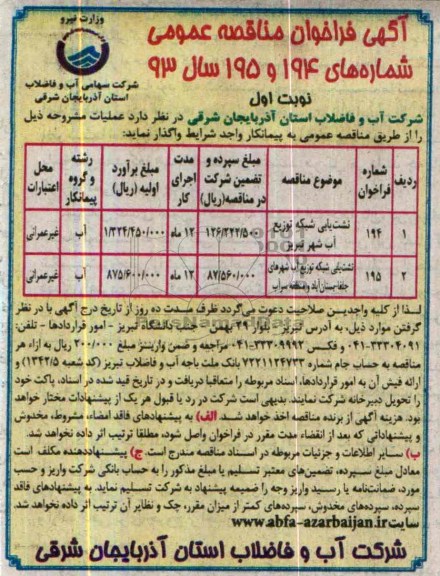 وزارت نیرو
شرکت سهامی آب و فاضلاب
استان آذربایجان شرقی
آگهی فراخوان مناقصه عمومی
شماره‌های ۱۹۴ و ۱۹۵ سال ۹۳
نوبت اول
شرکت آب و فاضلاب استان آذربایجان شرقی در نظر دارد عملیات مشروحه ذیل
را از طریق مناقصه عمومی به پیمانکار واجد شرایط واگذار نماید:
ردیف | شماره فراخوان | موضوع مناقصه | مبلغ سپرده و تضمین شرکت در مناقصه(ریال) | مدت اجرای کار | مبلغ برآورد اولیه (ریال) | رشته و گروه پیمانکار | محل اعتبارات
۱ | ۱۹۴ | نشت‌یابی شبکه توزیع آب شهر تبریز | ۱۲ ماه | آب | غیرعمرانی
۲ | ۱۹۵ | نشت‌یابی شبکه توزیع آب شهرهای جلفا-بستان‌آباد و منطقه سراب | ۸۷/۵۶۰/۰۰۰ | ۱۲ ماه | ۸۷۵/۶۰۰/۰۰۰ | آب | غیرعمرانی
لـذا از کلیه واجدیـن صلاحیت دعوت می‌گردد ظرف مـدت ده روز از تاریخ درج آگهی با در نظر
گرفتن موارد ذیل، به آدرس تبریز - بلوار ۲۹ بهمن - جنب باشگاه تبریز - امور قراردادها - تلفن:
۰۴۱-۳۳۳۰۴۰۹۱ و فکس ۰۴۱-۳۳۳۰۹۹۹۲ مراجعه و ضمن واریز مبلغ ۲۰۰/۰۰۰ ریال به ازاء هر
مناقصه به حساب جام شماره ۷۲۲۱۱۲۴۷۳۳ بانک ملت باجه آب و فاضلاب تبریز (کد شعبه ۱۳۴۲/۵) و
ارائه فیش آن به امور قراردادها، اسناد مربوطه را متعاقبا دریافت و در تاریخ قید شده در اسناد، پاکت خود
را تحویل دبیرخانه شرکت نمایند. بدیهی است شرکت در رد یا قبول هر یک از پیشنهادات مختار خواهد
بود. هزینه آگهی از برنده مناقصه اخذ خواهد شـد. الف) به پیشنهادهای فاقد امضاء، مشروط، مخدوش
و پیشنهاداتی که بعد از انقضاء مدت مقرر در فراخوان واصل شود، مطلقا ترتیب اثر داده نخواهد شد.
ب) سـایر اطلاعات و جزئیات مربوطه در اسـناد مناقصه مندرج است. ج) پیشنهاددهنده مکلف است
معادل مبلغ سـپرده، تضمین‌های معتبر تسـلیم یا مبلغ مذکور را به حساب بانکی شرکت واریز و حسب
مورد، ضمانت‌نامه یا رسـید واریز وجه را ضمیمه پیشنهاد به شرکت تسـلیم نماید. به پیشنهادهای فاقد
سپرده، سپرده‌های مخدوش، سپرده‌های کمتر از میزان مقرر، چک و نظایر آن ترتیب اثر داده نخواهد شد.
سایت www.abfa-azarbaijan.ir
شرکت آب و فاضلاب استان آذربایجان شرقی